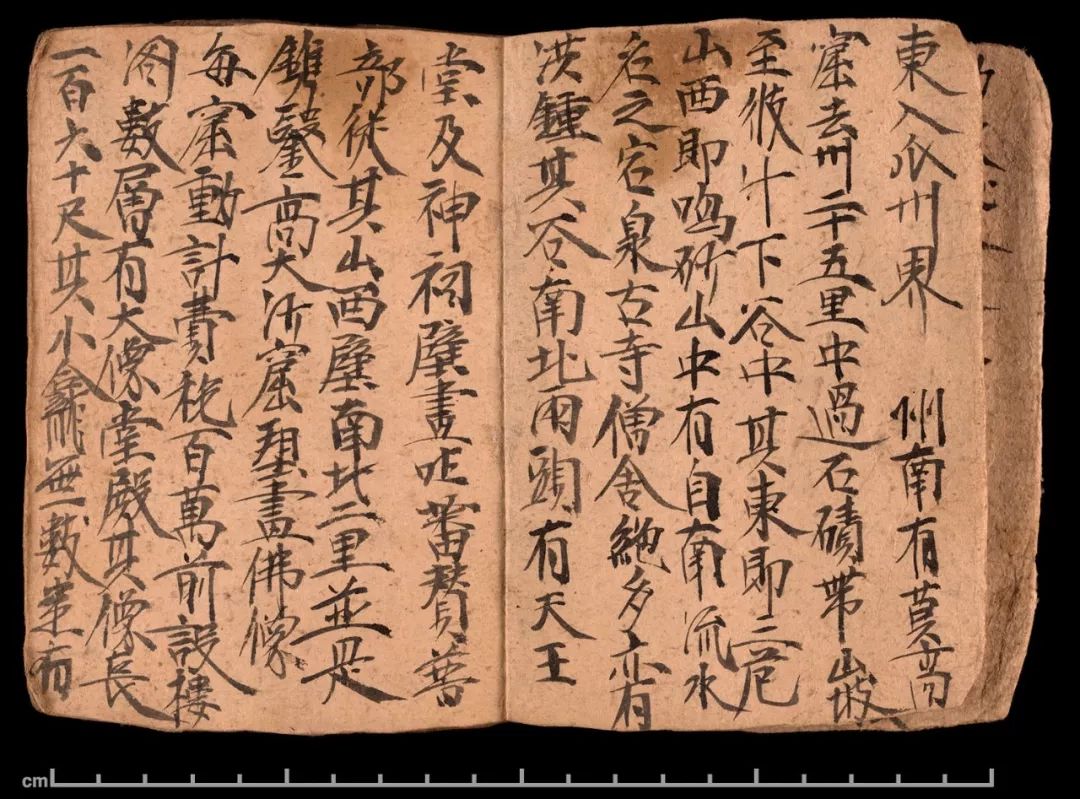 東入瓜州界　州南有莫高
窟去州二十五里中過石磧帶山坡
至彼斗下谷中其東即三危
山西即鳴砂山中有自南流水
名之宕泉古寺僧舍絶多亦有
洪鍾其谷南北兩頭有天王
堂及神祠壁畫吐蕃贊普
部從其山西壁南北二里並是
鐫鑿高大沙窟塑畫佛像
每窟動計費稅百萬前設樓
閣數層有大像堂殿其像長
一百六十尺其小龕無數悉有
cm